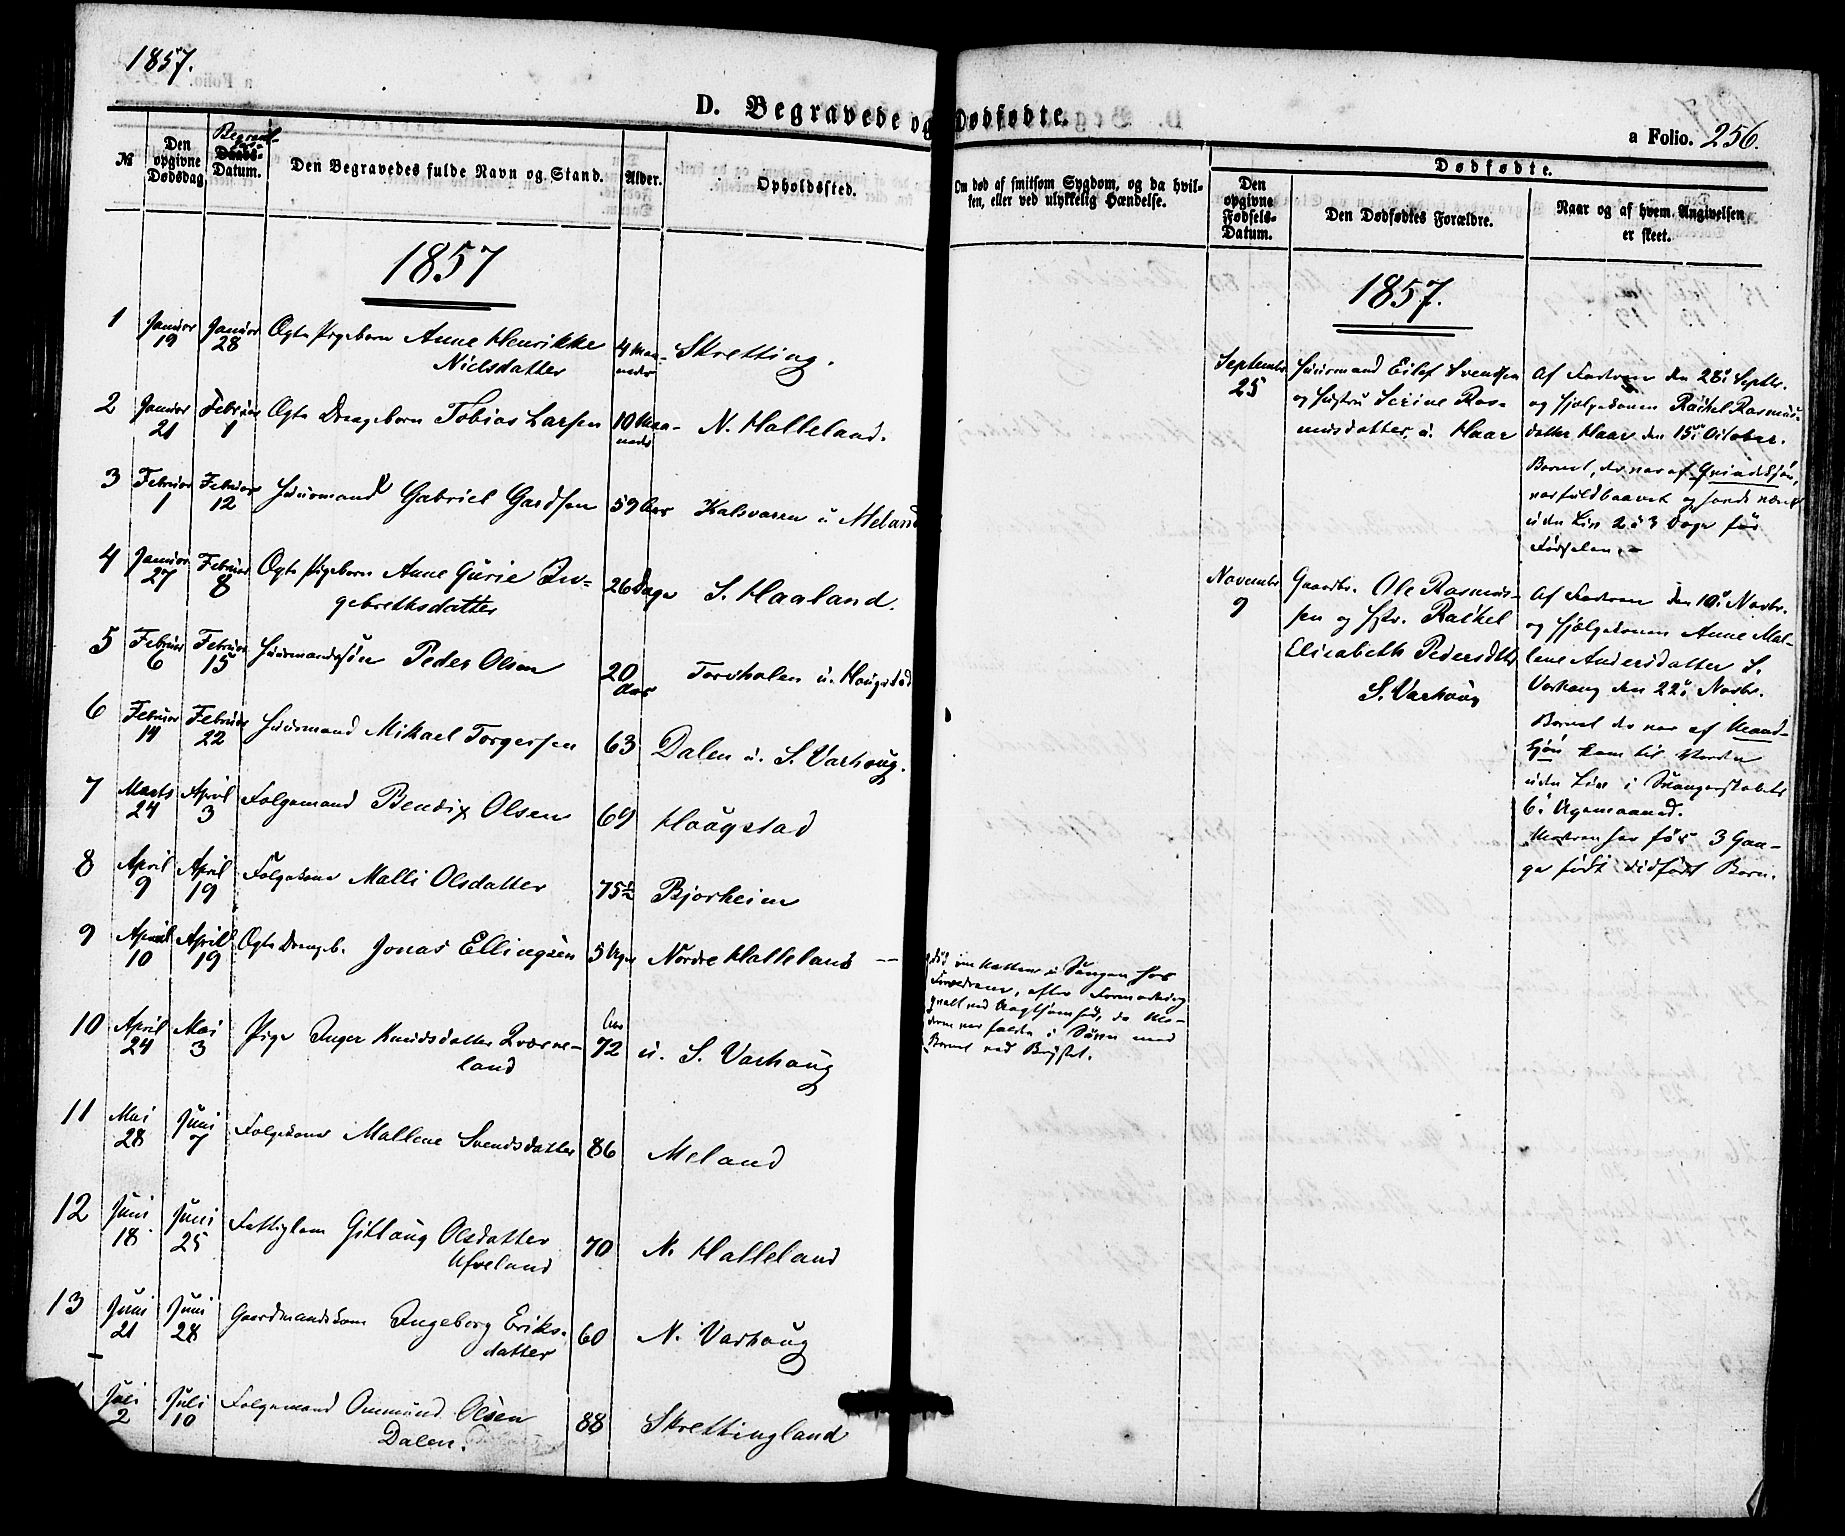 1857.
D. Begravede og Dødfødte.
a Folio. 256.
№
Den opgivne Dødsdag
Begravelses-Datum.
Den Begravedes fulde Navn og Stand.
Alder.
Opholdssted.
Om død af smitsom Sygdom, og da hvilken, eller ved ulykkelig Hændelse.
Dødfødte.
Den opgivne Fødsels-Datum.
Den Dødfødtes Forældre.
Naar og af hvem Angivelsen er skeet.
1857
1 Januar 19 Januar 28 Ægte Pigebarn Anne Henrikke Nielsdatter 4 Maaneder Skretting.
2 Januar 21 Februar 1 Ægte Drengebarn Tobias Larsen 10 Maaneder N. Halleland.
3 Februar 1 Februar 12 Huusmand Gabriel Gardsen 59 Aar Kalsvaren u. Meland
4 Januar 27 Februar 8 Ægte Pigebarn Anne Gurie Ingebrethsdatter 26 Dage S. Haaland.
5 Februar 6 Februar 15 Huusmandssøn Peder Olsen 20 Aar Torvholen u. Haugstad
6 Februar 14 Februar 22 Huusmand Mikael Torgersen 63 Dalen u. S. Varhoug.
7 Marts 24 April 3 Folgemand Bendix Olsen 69 Haugstad
8 April 9 April 19 Folgekone Malli Olsdatter 75½ Bjorheim
9 April 10 April 19 Ægte Drengeb. Jonas Ellingsen 3 Uger Nordre Halleland --
død om Natten i Sengen hos
Forældrene, efter Formodning
qvalt ved Uagtsomhed, da Mo-
deren var falden i Søvn med
Barnet ved Brystet.
10 April 24 Mai 3 Pige Inger Knudsdatter Qværneland Aar 72 u. S. Varhaug
11 Mai 28 Juni 7 Folgekone Mallene Svendsdatter 86 Meland
12 Juni 18 Juni 25 Fattiglem Gitlaug Olsdatter Ufveland 70 N. Halleland
13 Juni 21 Juni 28 Gaardmandskone Ingeborg Eriksdatter 60 N. Varhoug
Juli 2 Juli 10 Folgemand Ommund Olsen Dalen. 88 Skrettingland
1857.
September 25
Huusmand Eilef Svendsen
og Hustru Serine Ras-
musdatter, u. Haar
Af Faderen den 28de Septbr.
og Hjelpekonen Rachel Rasmus-
datter Haar den 15de October.
Barnet, der var af Qvindekjøn,
var fuldbaaret og havde været
uden Liv 2 à 3 Dage før
Fødselen.
November 9
Gaardbr. Ole Rasmus-
sen og Hstr. Rachel
Elisabeth Pedersdtr
S. Varhoug
Af Faderen den 10de Novbr.
og Hjelpekonen Anne Mal-
lene Andersdatter S.
Varhoug den 22de Novbr.
Barnet der var af Mand-
kjøn kom til Verden
uden Liv i Svangerskabets
6te Ugemaaned.
Moderen har før 3 Gan-
ge født dødfødt Børn.